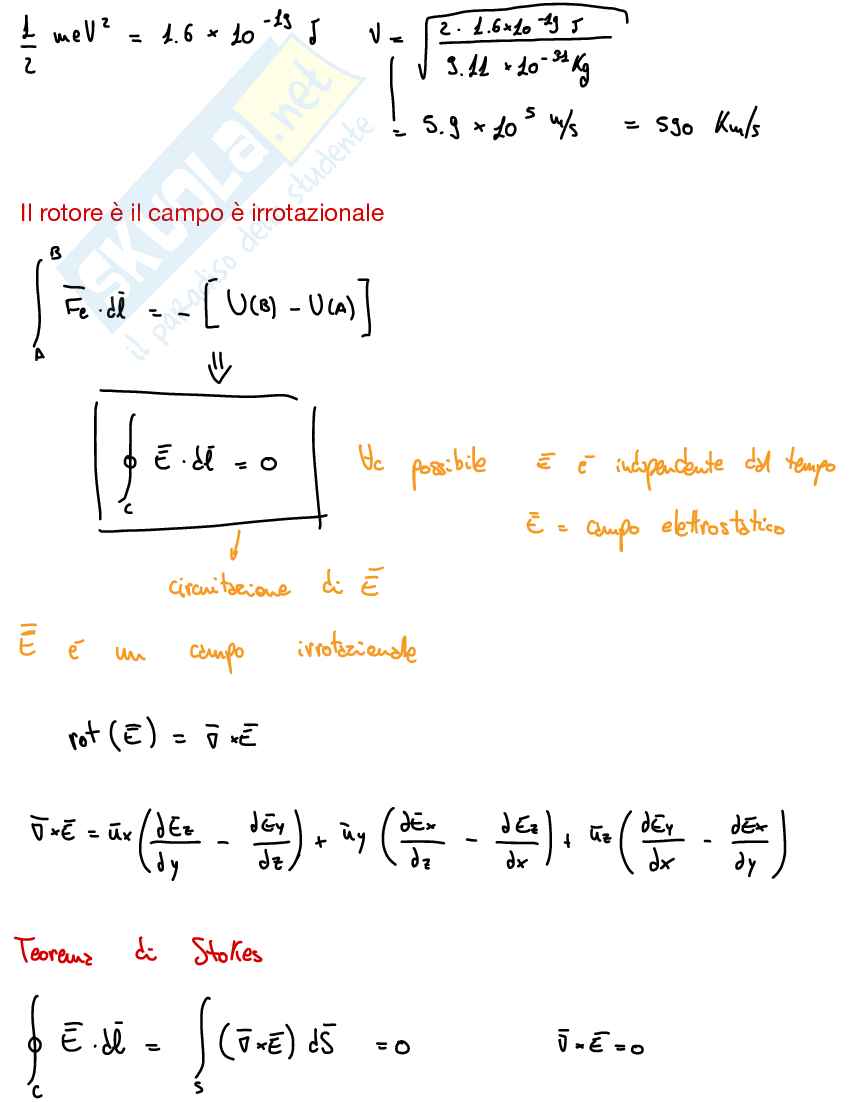 1/2 meV² = 1.6 × 10^-19 J V = √(2 · 1.6×10^-19 J / 9.11 × 10^-31 Kg)
= 5.9 × 10^5 m/s = 590 Km/s
SKUOLA.net
il paradiso dello studente
Il rotore è il campo è irrotazionale
∫_A^B F̅e · dl̅ = - [U(B) - U(A)]
⇓
∮_C E̅ · dl̅ = 0 ∀c possibile E̅ é indipendente dal tempo
E̅ = campo elettrostatico
circuitazione di E̅
E̅ é un campo irrotazionale
rot (E̅) = ∇̅ × E̅
∇̅ × E̅ = u̅x (dEz/dy - dEy/dz) + u̅y (dEx/dz - dEz/dx) + u̅z (dEy/dx - dEx/dy)
Teorema di Stokes
∮_C E̅ · dl̅ = ∫_S (∇̅ × E̅) dS̅ = 0 ∇̅ × E̅ = 0